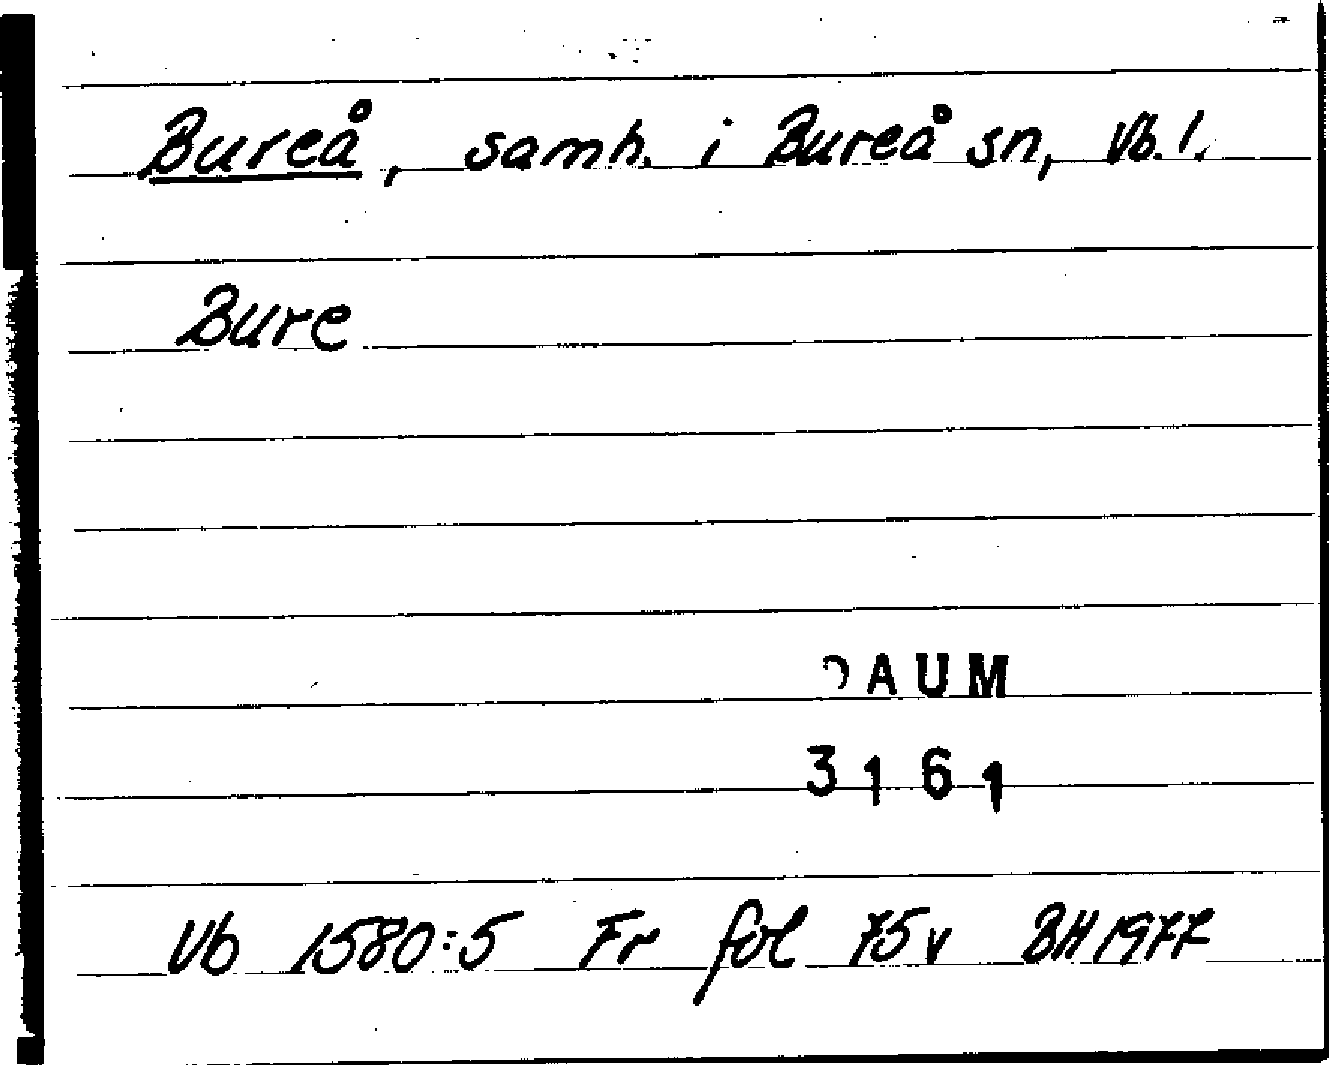 Bureå, samh. i Bureå sn, Vb. l.
Bure
DAUM
3161
Vb 1580:5 Fr fol 75v BH 1977